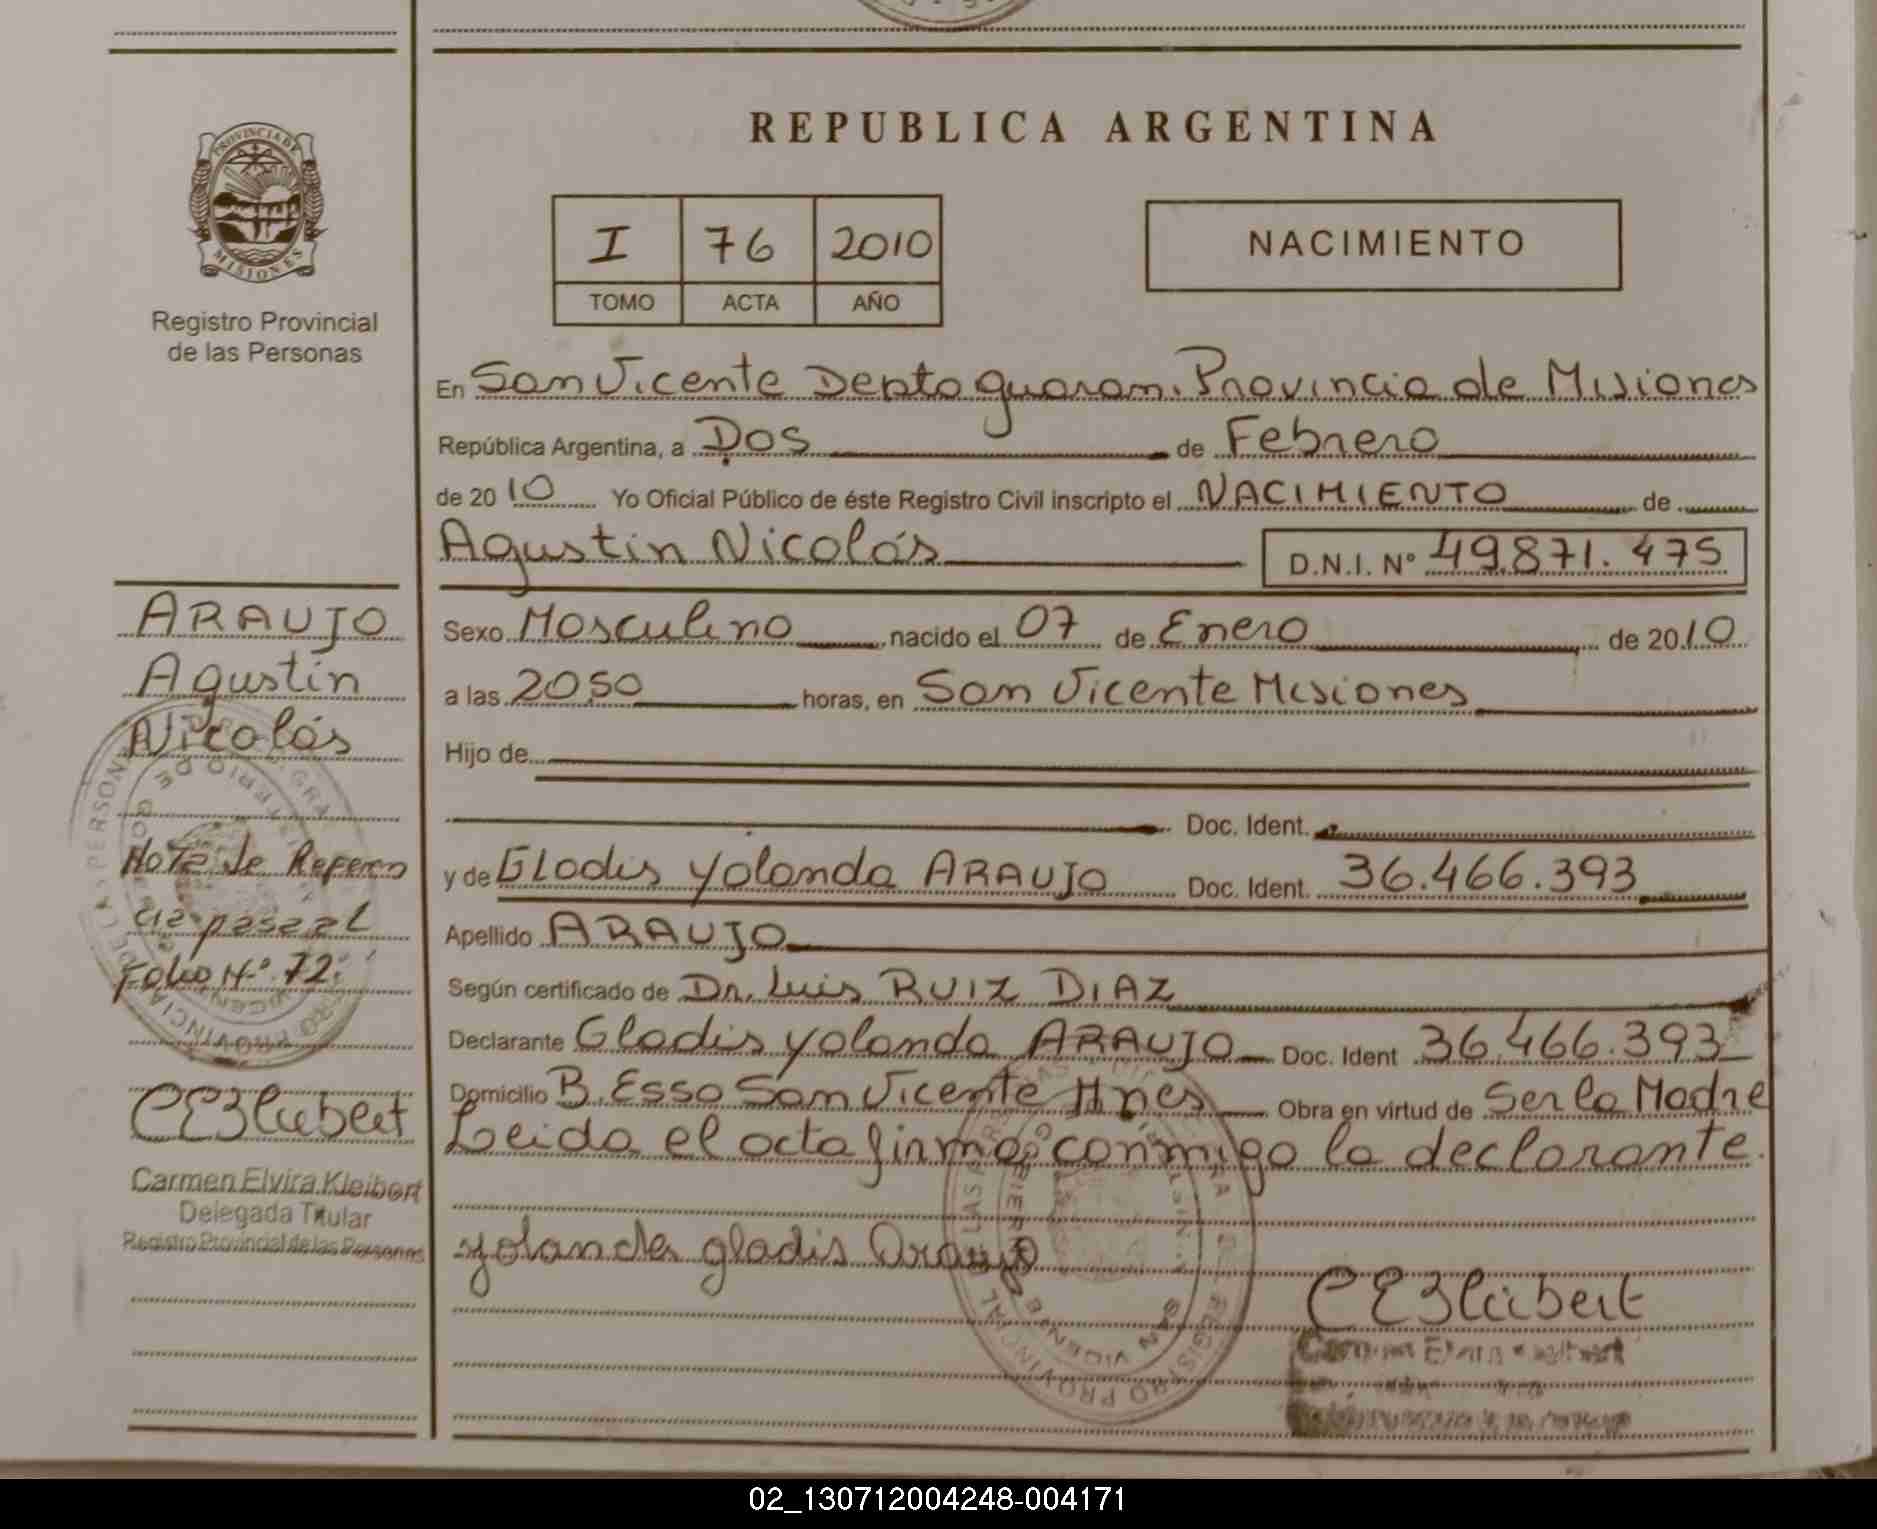 REPUBLICA ARGENTINA
PROVINCIA DE
MISIONES
Registro Provincial
de las Personas
I 76 2010
TOMO ACTA AÑO
NACIMIENTO
En San Vicente Depto guarani Provincia de Misiones
República Argentina, a Dos de Febrero
de 2010 Yo Oficial Público de éste Registro Civil inscripto el NACIMIENTO de
Agustin Nicolás D.N.I. Nº 49.871.475
Sexo Masculino nacido el 07 de Enero de 2010
a las 20,50 horas, en San Vicente Misiones
Hijo de
Doc. Ident.
y de Gladis Yolanda ARAUJO Doc. Ident. 36.466.393
Apellido ARAUJO
Según certificado de Dr. Luis RUIZ DIAZ
Declarante Gladis Yolanda ARAUJO Doc. Ident 36.466.393
Domicilio B. Esso San Vicente Mnes Obra en virtud de Ser la Madre
Leida el acta firma conmigo la declarante.
yolanda gladis Araujo
CEKleibert
REGISTRO PROVINCIAL DE LAS
SAN VICENTE
ARAUJO
Agustin
Nicolás
Nota de Referen
cia pasa al
Folio Nº 72.
CEKleibert
Carmen Elvira Kleibert
Delegada Titular
Registro Provincial de las Personas
02_130712004248-004171